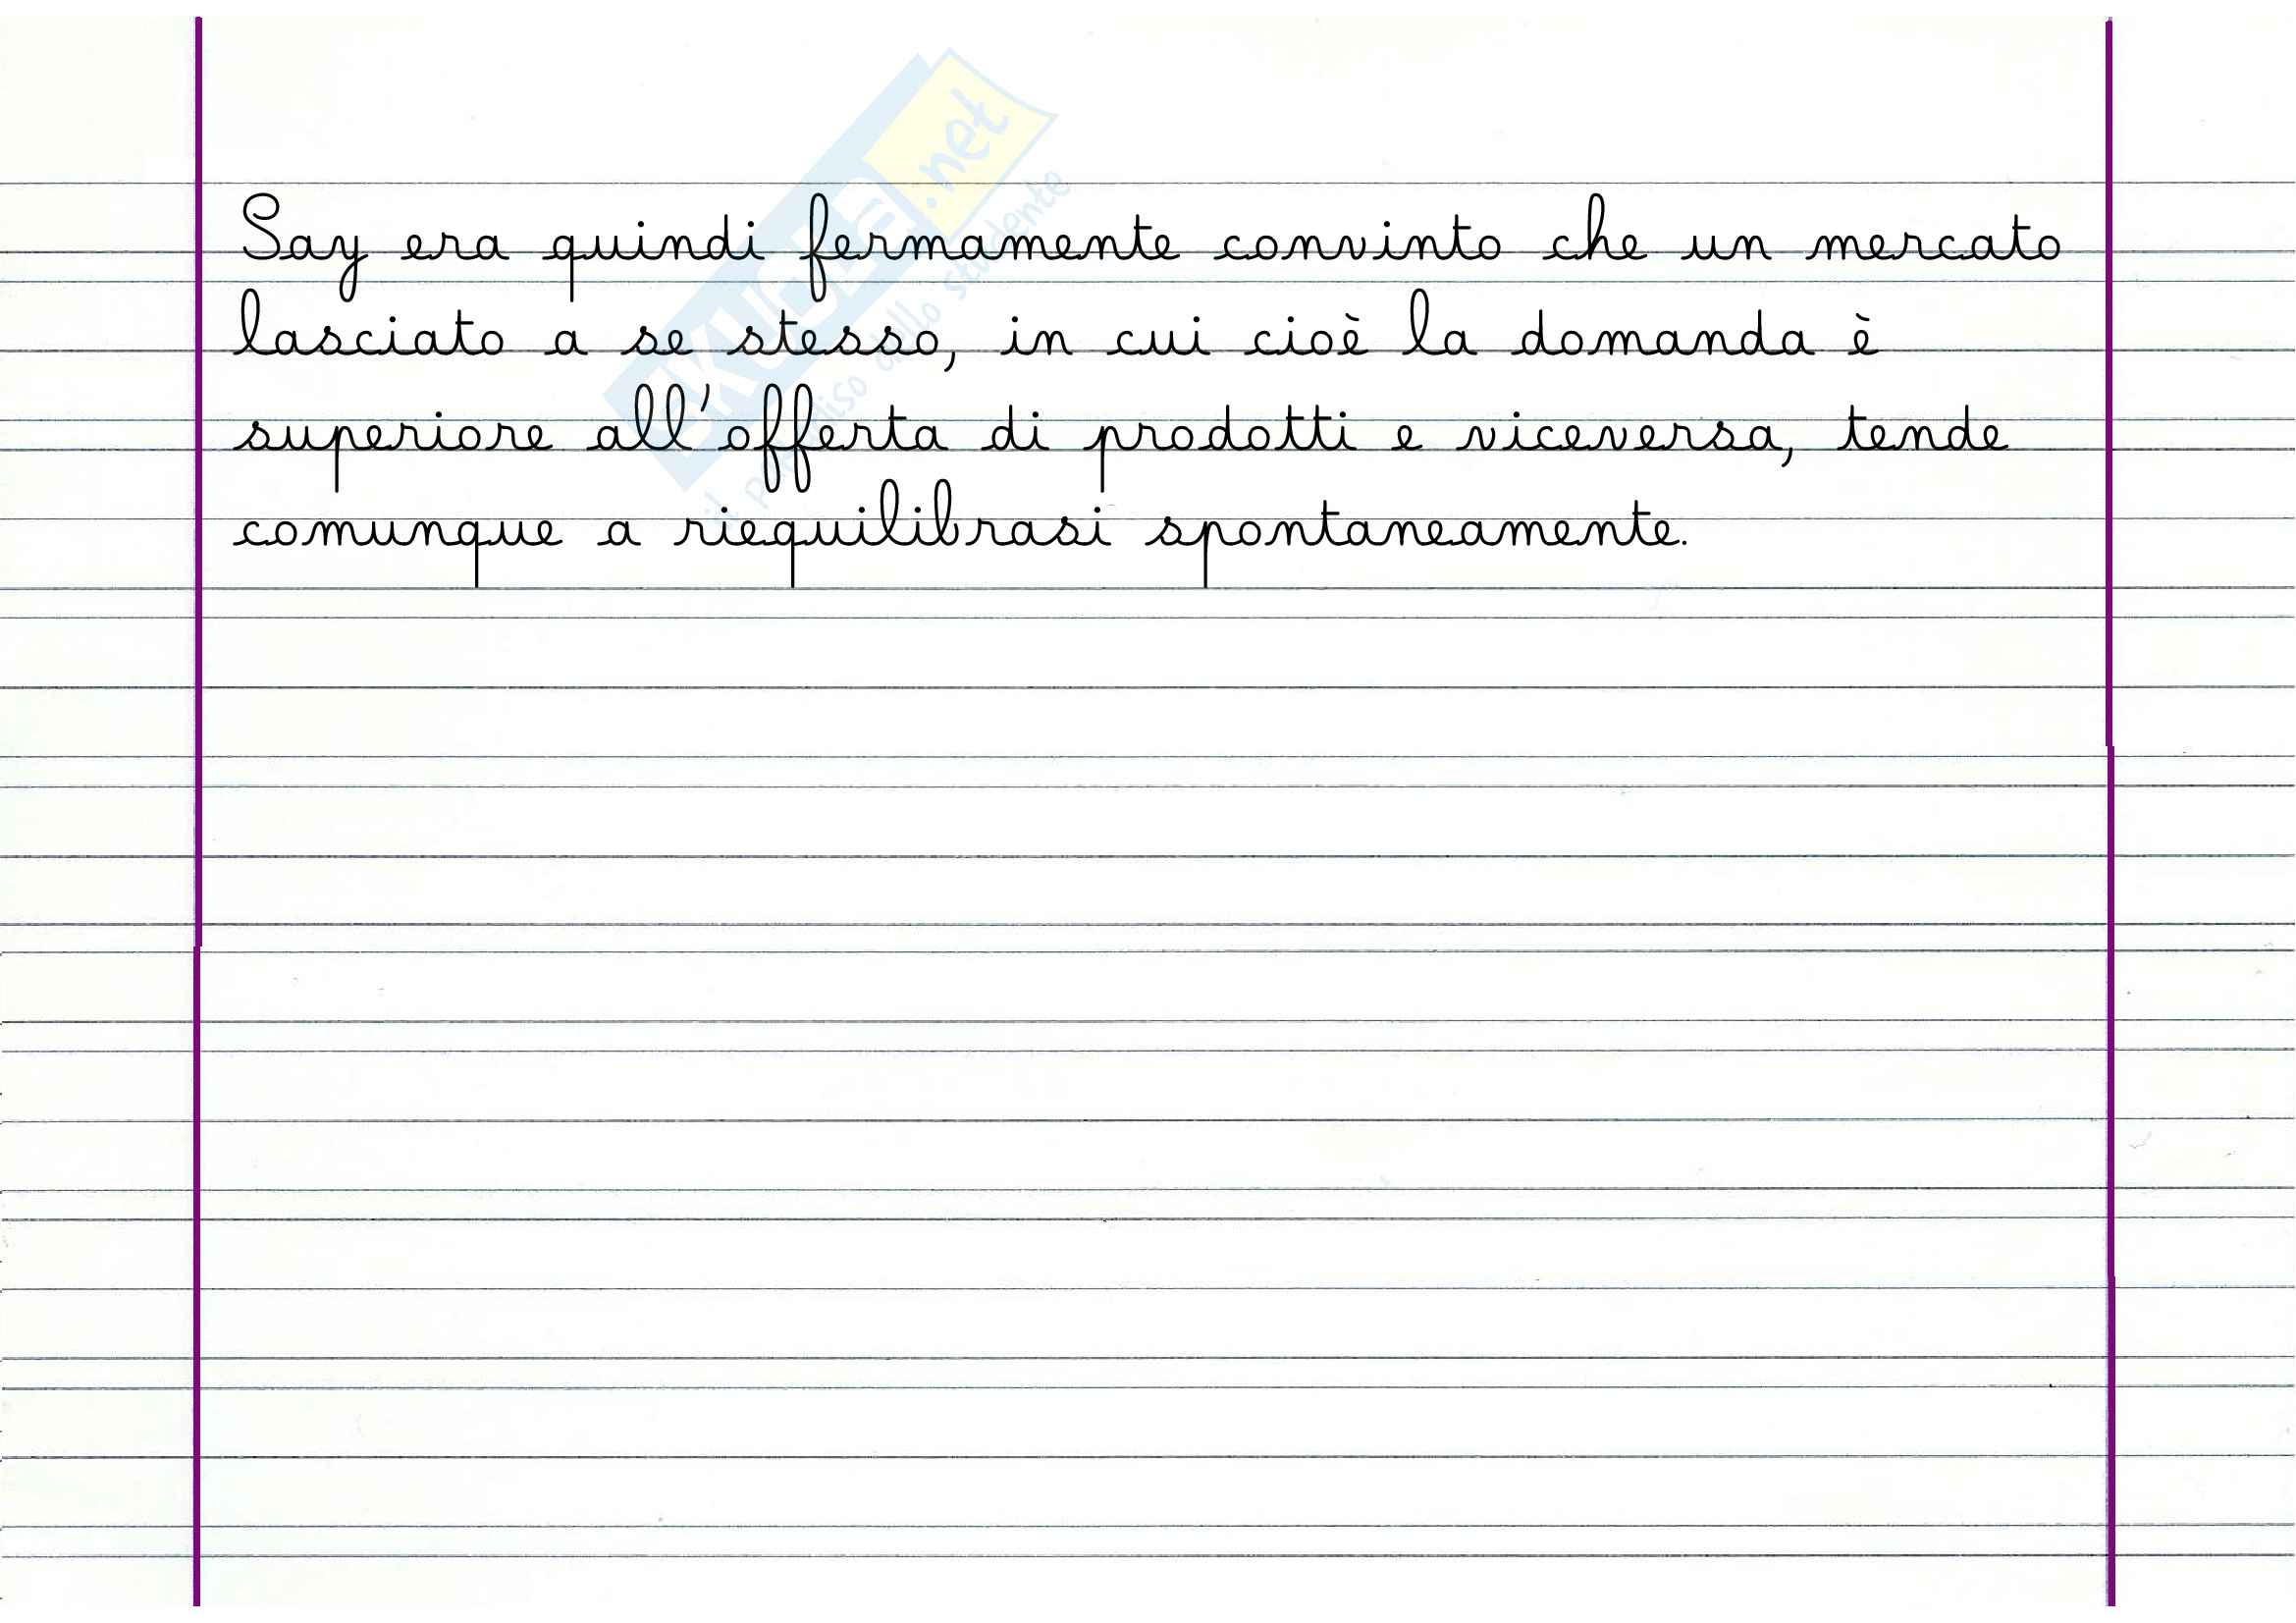 Say era quindi fermamente convinto che un mercato
lasciato a se stesso, in cui cioè la domanda è
superiore all'offerta di prodotti e viceversa, tende
comunque a riequilibrasi spontaneamente.
SKUOLA.net
il paradiso dello studente